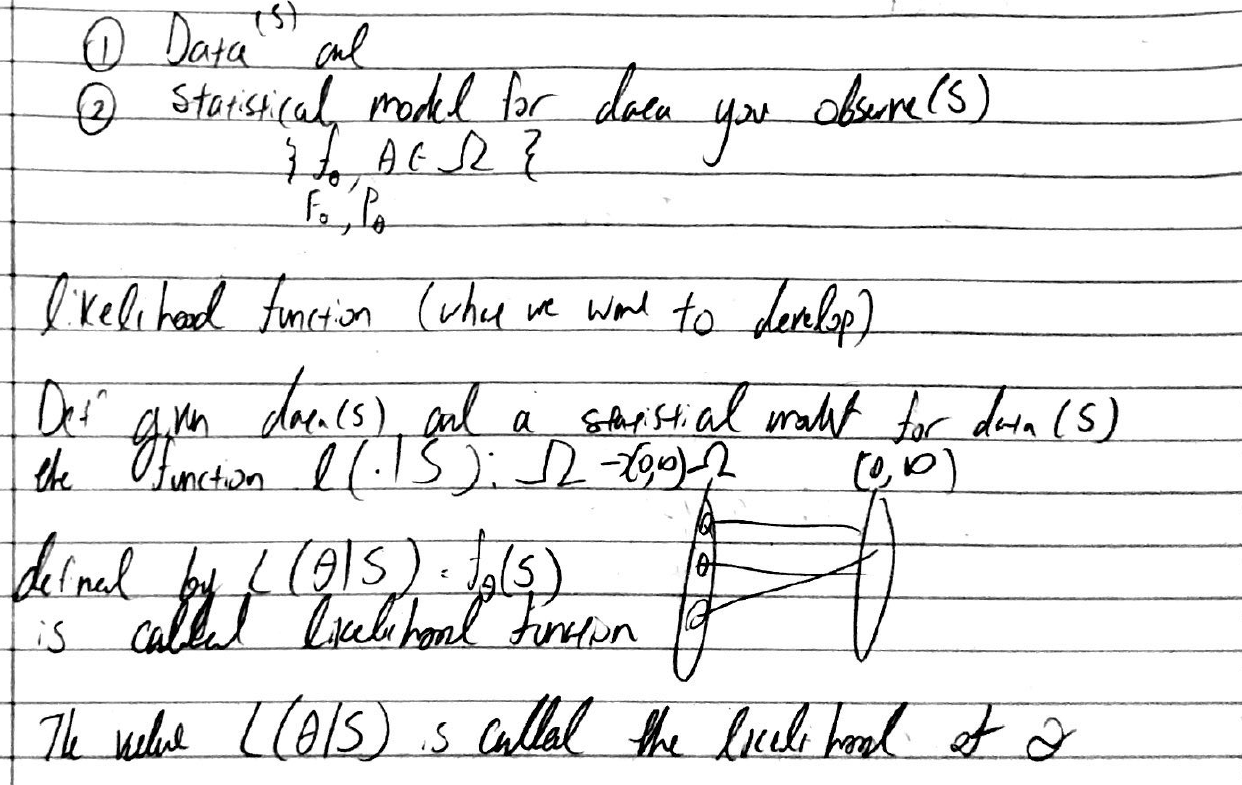 ① Data (s) and
② statistical model for data you observe (s)
{ f_θ, θ ∈ Ω }
F_θ, P_θ
likelihood function (what we want to develop)
Defⁿ given data (s) and a statistical model for data (s)
the function L(.|S): Ω → [0,∞) Ω [0, ∞)
defined by L(θ|S) = f_θ(S)
θ
θ
θ
is called likelihood function
The value L(θ|S) is called the likelihood of θ